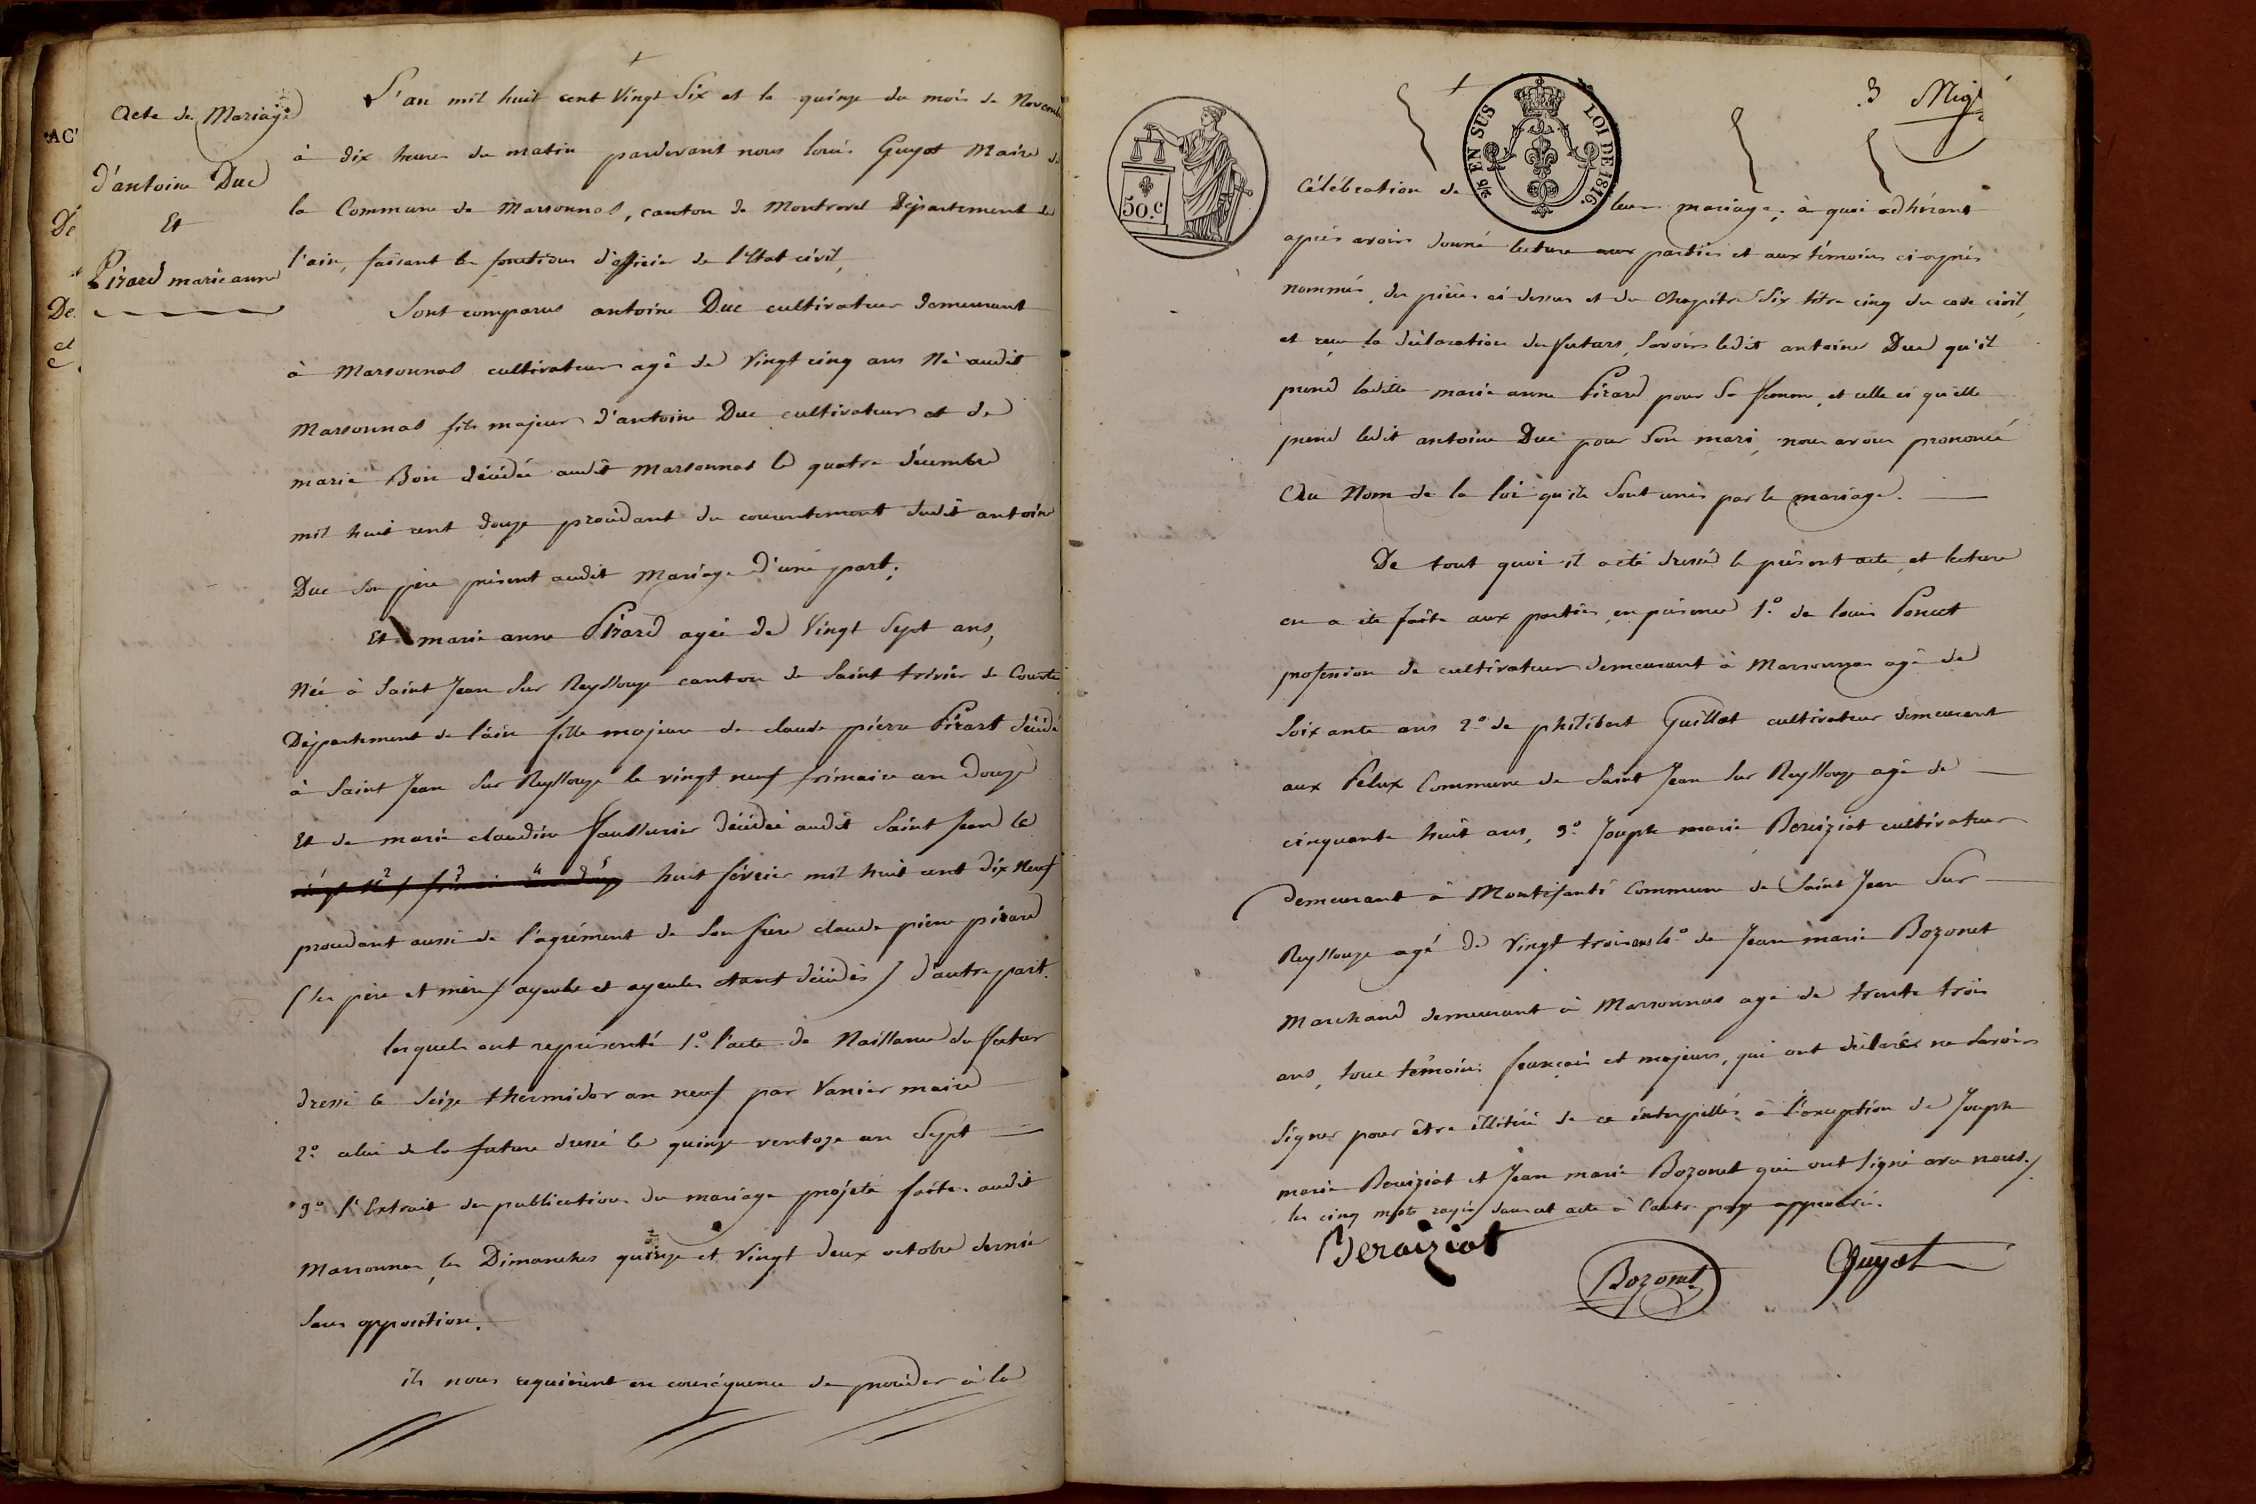 Acte de Mariage
d'antoine Duc
Et
Pirard marie anne
L'an mil huit cent Vingt Six et le quinze du mois de Novembre
à dix heures du matin pardevant nous louis Guyot Maire de
la Commune de Marsonnas, canton de Montrevel Département de
l'ain, faisant les fonctions d'officier de l'Etat civil,
Sont comparus antoine Duc cultivateur demeurant
à Marsonnas cultivateur agé de Vingt cinq ans Né audit
Marsonnas fils majeur d'antoine Duc cultivateur et de
marie Boin décédée audit Marsonnas le quatre décembre
mil huit cent douze procédant du consentement dudit antoine
Duc son père présent audit Mariage d'une part;
Et marie anne Pirard agée de Vingt Sept ans,
Née à Saint Jean Sur Reyssouze canton de Saint trivier de Courtes
Département de l'ain fille majeure de claude pierre Pirart décédé
à Saint Jean Sur Reyssouze le vingt neuf frimaire an douze
Et de marie claudine décédée audit Saint Jean le
huit février mil huit cent dix Neuf
procédant aussi de l'agrément de son frère claude pierre pirard
(les père et mère, ayeuls et ayeules étant décédés) d'autre part.
lesquels ont représenté 1.º l'acte de Naissance du futur
dressé le Seize thermidor an neuf par Vanier maire
2.º celui de la future dressé le quinze ventoze an Sept
3.º l'Extrait des publications du mariage projeté faites audit
Marsonnas les Dimanches quinze et Vingt deux octobre dernier
Sans opposition.
ils nous requièrent en conséquence de procéder à la
50.c
2/5 EN SUS
LOI DE 1816.
3
Célébration de leur mariage; à quoi adhérant
après avoir donné lecture aux parties et aux témoins ci-après
nommés, des pièces ci-dessus et du Chapitre Six titre cinq du code civil,
et reçu la déclaration des futurs, Savoir ledit antoine Duc qu'il
prend ladite marie anne Pirard pour Sa femme, et celle ci qu'elle
prend ledit antoine Duc pour Son mari, nous avons prononcé
Au Nom de la loi qu'ils Sont unis par le mariage.
De tout quoi il a été dressé le présent acte, et lecture
en a été faite aux parties, en présence 1.º de louis Poncet
profession de cultivateur demeurant à Marsonnas agé de
Soixante ans 2.º de philibert Guillot cultivateur demeurant
aux Pelux Commune de Saint Jean Sur Reyssouze agé de
cinquante huit ans, 3.º Joseph marie Beroiziat cultivateur
demeurant à Commune de Saint Jean Sur
Reyssouze agé de Vingt trois ans 4.º de Jean marie Bozonet
Marchand demeurant à Marsonnas agé de trente trois
ans, tous témoins français et majeurs, qui ont déclarés ne Savoir
Signer pour être illitéré de ce interpellés à l'exception de Joseph
marie Beroiziat et Jean marie Bozonet qui ont Signé avec nous./
les cinq mots rayés dans cet acte à l'autre page approuvé.
Beroiziat
Bozonet
Guyot